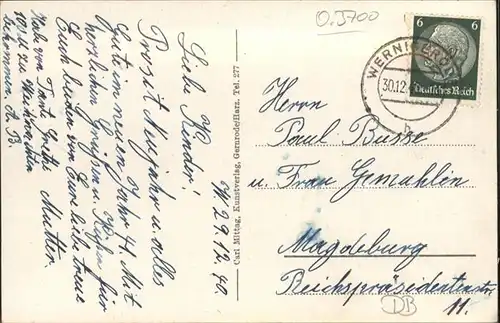 W. 29.12.40
Liebe Kinder!
Prosit Neujahr u. alles
Gute im neuen Jahr 41. Mit
herzlichen Grüssen u. Küssen für
Euch beiden von Eure liebe treue
Mutter.
Habe von Tante Grete
100 M zu Weihnachten
bekommen. A. B.
Carl Mittag, Kunstverlag, Gernrode/Harz. Tel. 277
O.5700
6 6
Deutsches Reich
WERNIGERODE
30.12.
Herrn
Paul Busse
u. Frau Gemahlin
Magdeburg
Reichspräsidentenstr
11.
DB